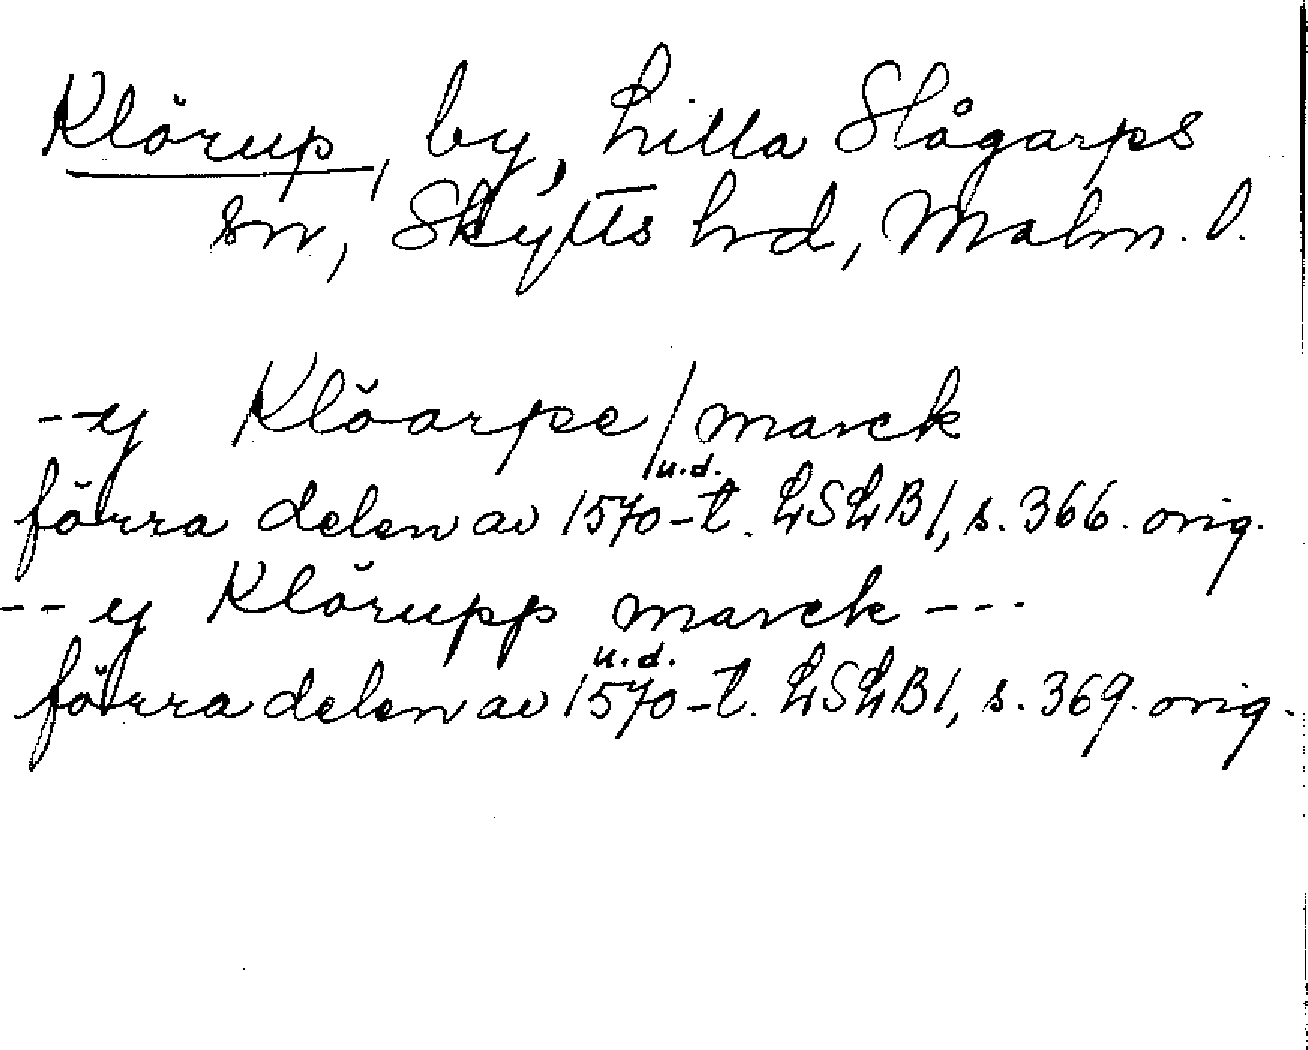 Klörup, by, Lilla Slågarps
sn, Skytts hd, Malm. l.
--y Klöarpe/marck
u.d.
förra delen av 1570-t. LSLB1, s. 366. orig.
--y Klörupp marck---
u.d.
förra delen av 1570-t. LSLB1, s. 369. orig.